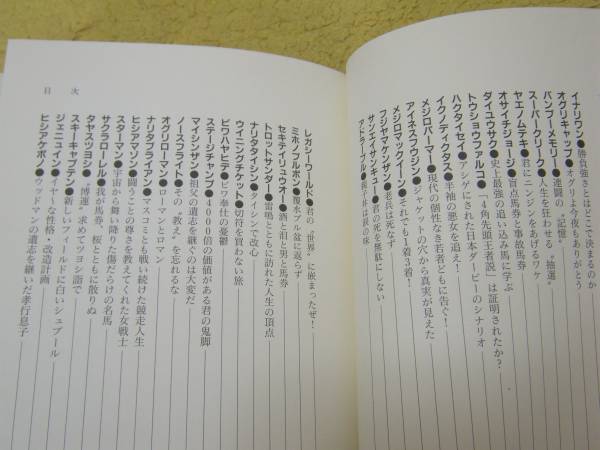 イナリワン●勝負強さとはどこで決まるのか
オグリキャップ●オグリよ今夜もありがとう
バンブーメモリー●連闘の〝記憶〟
スーパークリーク●人生を狂わせる〝抽選〟
ヤエノムテキ●君にニンジンをあげるワケ
オサイチジョージ●盲点馬券と事故馬券
ダイユウサク●史上最強の追い込み馬に学ぶ
トウショウファルコ●「4角先頭王者説」は証明されたか?
ハクタイセイ●アシゲにされた日本ダービーのシナリオ
イクノディクタス●半袖の悪女を追え!
メジロパーマー●現代の個性なき若者どもに告ぐ!
アイネスフウジン●ジャケットの穴から真実が見えた
メジロマックイーン●それでも1着3着!
フジヤマケンザン●老兵は死なず
サンエイサンキュー●君の死を無駄にしない
アドラーブル●
レガシーワールド●君の〝世界〟に嵌まったぜ!
ミホノブルボン●覆水フル盆に返らず
セキテイリュウオー●酒と泪と男と馬券
トロットサンダー●雷鳴とともに訪れた人生の頂点
ナリタタイシン●タイシンで改心
ウイニングチケット●切符を買わない旅
ビワハヤヒデ●ビワ奉仕の憂鬱
ステージチャンプ●4000倍の価値がある君の鬼脚
マイシンザン●祖父の遺志を継ぐのは大変だ
ノースフライト●その〝教え〟を忘れるな
オグリローマン●ローマンとロマン
ナリタブライアン●マスコミとも戦い続けた競走人生
ヒシアマゾン●闘うことの尊さを教えてくれた女戦士
スターマン●宇宙から舞い降りた傷だらけの名馬
サクラローレル●我が馬券、桜とともに散りぬ
タヤスツヨシ●〝博運〟求めてツヨシ詣で
スキーキャプテン●新しいフィールドに白いシュプール
ジェニュイン●イヤ〜な性格・改造計画
ヒシアケボノ●ウッドマンの遺志を継いだ孝行息子
目次